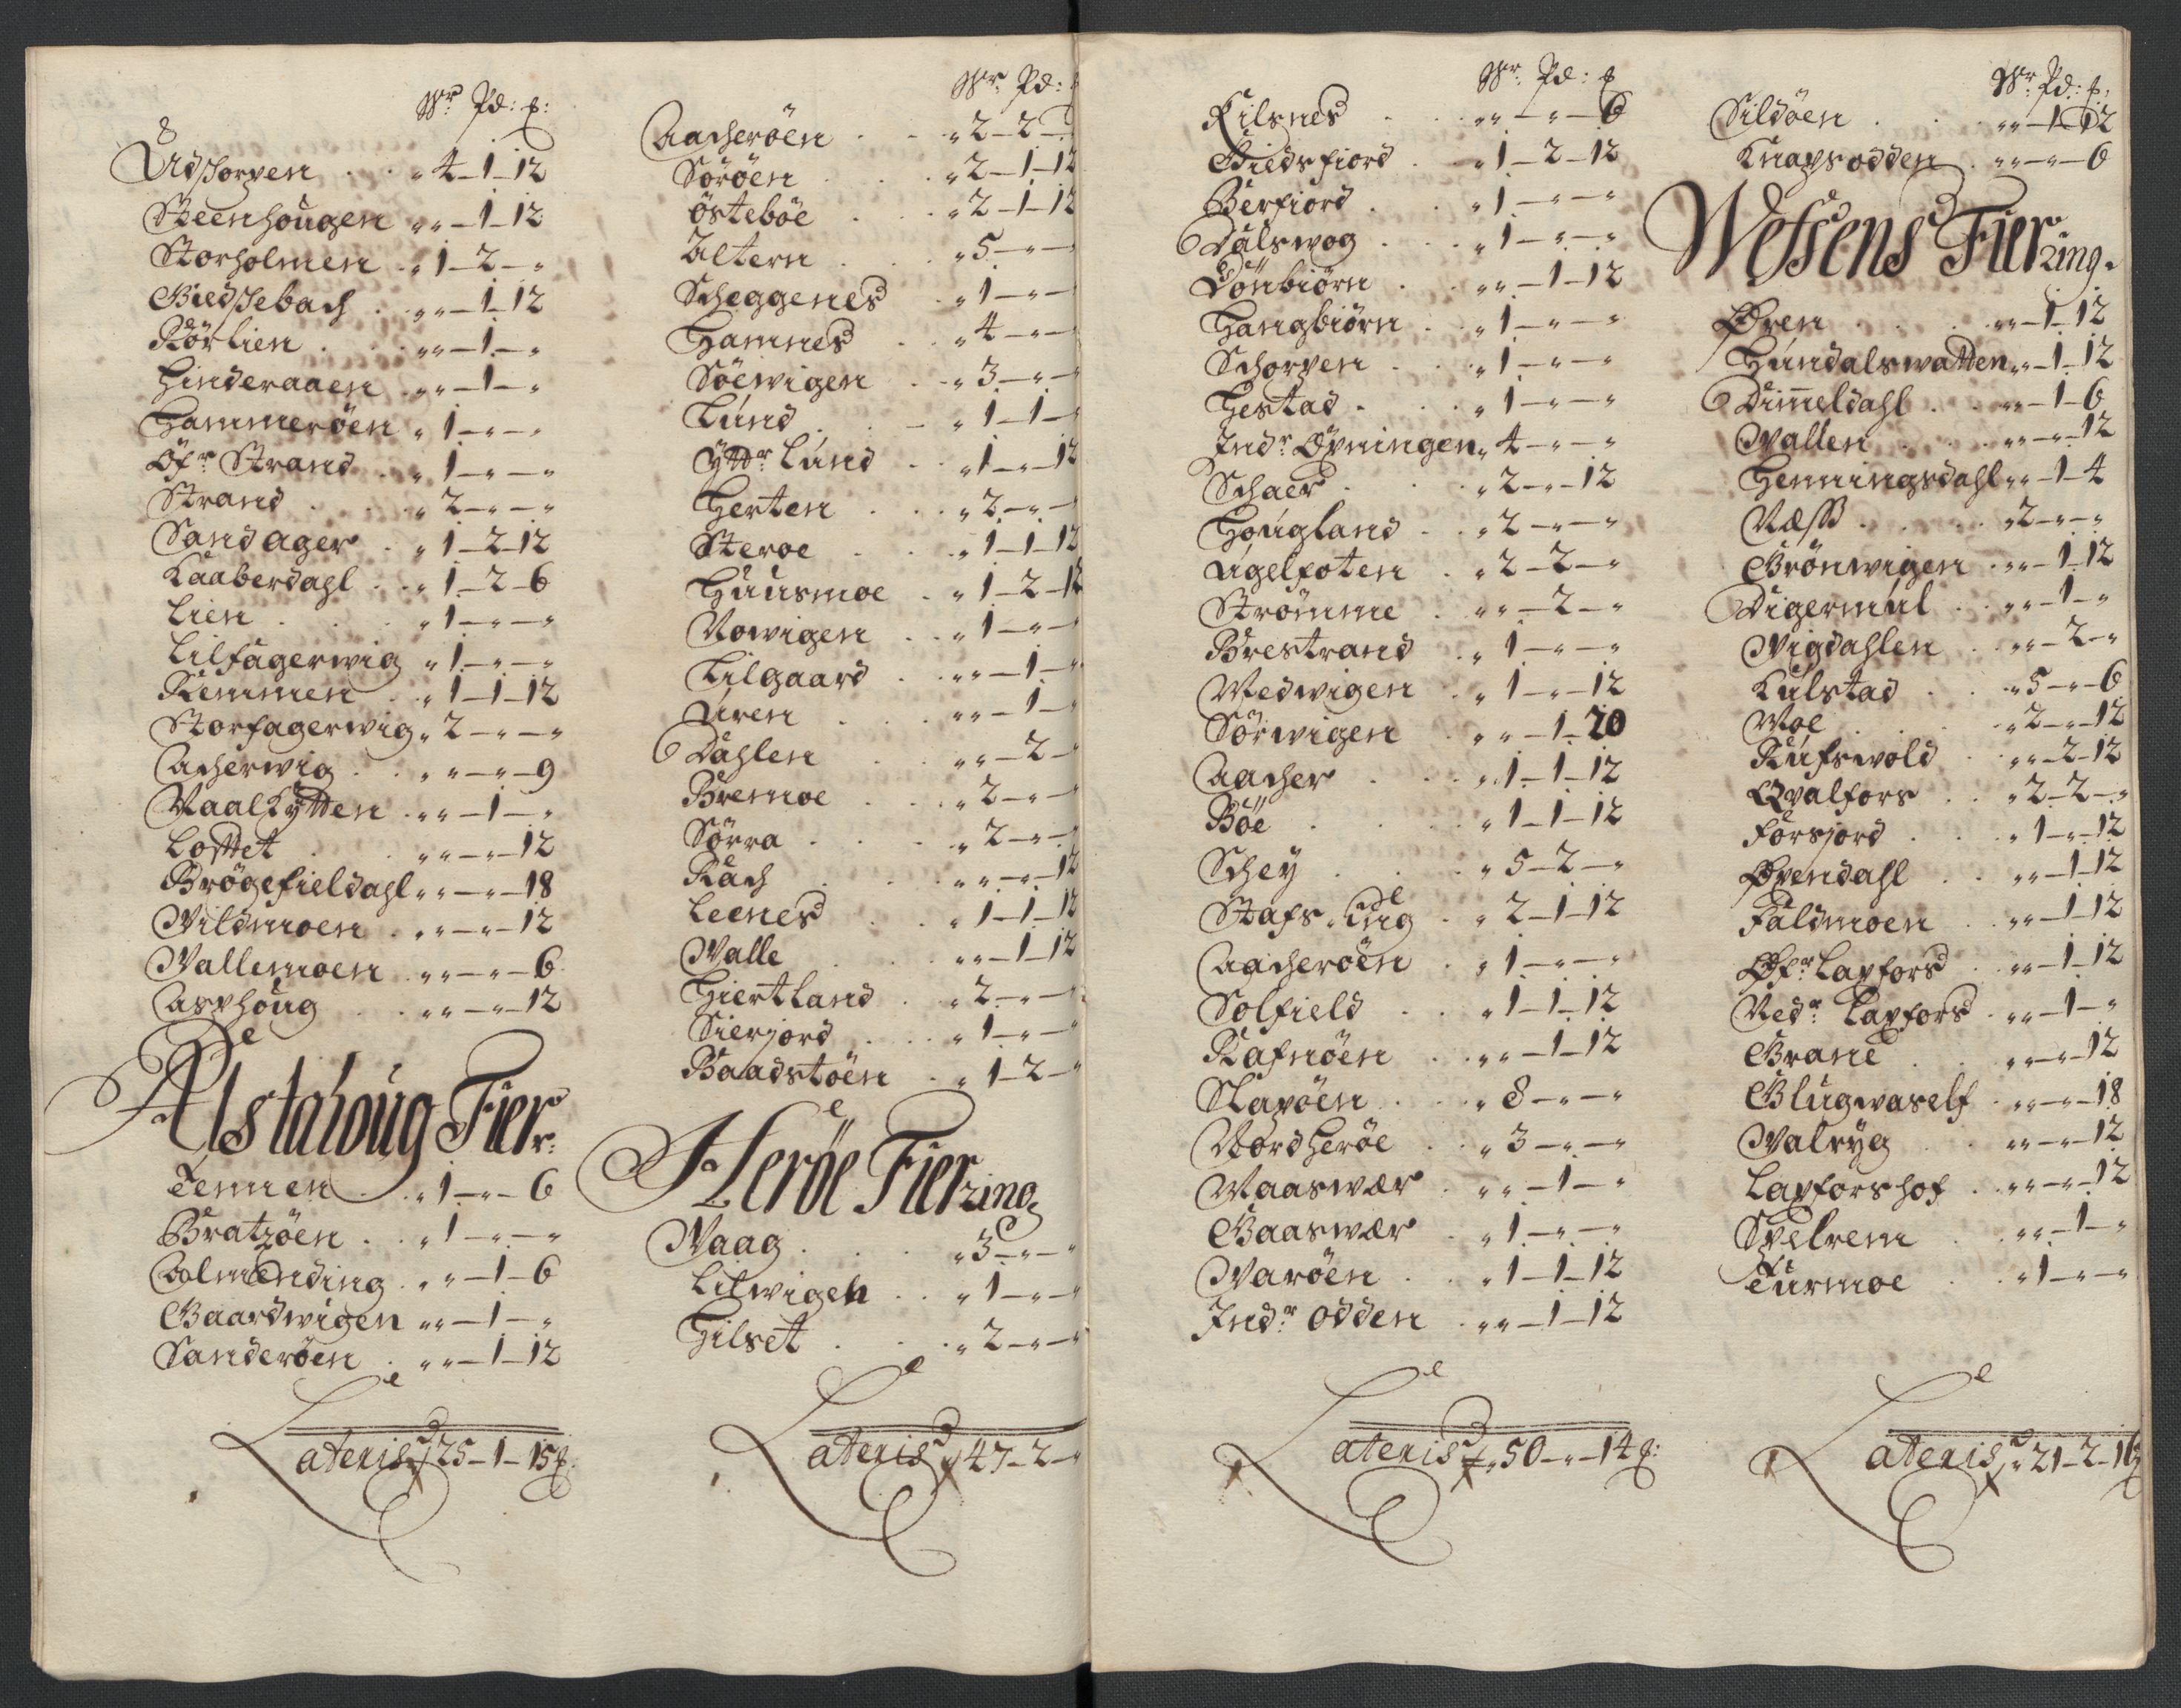 Wr Pd: ƀ:
Udskorpen . . „ 4 – 1 – 12
Steenhougen „ „ – 1 – 12
Storholmen . „ 1 – 2 – „
Giedskebach . „ „ – 1 – 12
Rörlien . . „ „ – 1 – „
Hinderaaen . „ „ – 1 – „
Hammeröen „ 1 – „ – „
Öfr Strand . „ 1 – „ – „
Strand . . „ 2 – „ – „
Sandager . „ 1 – 2 – 12
Kaaberdahl . . „ 1 – 2 – 6
Lien . . . „ 1 – „ – „
Lilfagerwig „ 1 – „ – „
Remmen . „ 1 – 1 – 12
Storfagerwig „ 2 – „ – „
Acherwig . . „ „ – „ – 9
Maalkytten . „ „ – 1 – „
Lofftet . . „ „ – „ – 12
Brögefieldahl „ „ – „ – 18
Vildmoen . „ „ – „ – 12
Wallemoen . „ „ – „ – 6
Asphoug . . „ „ – „ – 12
Alstahoug Fierr:
Tennen . . „ 1 – „ – 6
Bratzöen . . „ 1 – „ – „
Almending . „ „ – 1 – 6
Gaardwigen „ „ – 1 – „
Sanderöen . „ „ – 1 – 12
Lateris „ 25 – 1 – 15 ƀ:
Wr Pd:
Aacheröen . . „ 2 – 2 –
Söröen . . . „ 2 – 1 – 12
Östeböe . . „ 2 – 1 – 12
Altern . . . „ 5 – „ –
Scheggenes . „ 1 – „ –
Hamnes . „ 4 – „ –
Söewigen . . „ 3 – „ –
Lund . . – „ 1 – 1 –
Yttr Lund . . „ 1 – „ – 12
Herten . . „ 2 – „ –
Steroe . . „ 1 – 1 – 12
Huusmoe . . „ 1 – 2 – 12
Nowigen . . „ 1 – „ –
Lilgaard . „ „ – 1 –
Uren . . . „ „ – 1 –
Dahlen . . „ „ – 2 –
Bremoe . . „ 2 – „ –
Sörra . . . „ 2 – „ –
Rach . . . „ „ – „ – 12
Leenes . . „ 1 – 1 – 12
Walle . . . „ „ – 1 – 12
Hiertland . . „ 2 – „ –
Sierjord . . „ 1 – „ –
Baadstöen . „ 1 – 2 – „
Heröe Fierzing
Waag . . . „ 3 – „ – „
Lilwigen . . „ 1 – „ –
Hilset . . . „ 2 – „ – „
Lateris „ 47 – 2 –
Wr Pd: ƀ
Kilsnes . . „ „ – „ – 6
Giedsfiord . „ 1 – 2 – 12
Berfiord . . „ 1 – „ – „
Dalswog . . „ 1 – „ – „
Dönbiörn . „ „ – 1 – 12
Hangbiörn . „ 1 – „ – „
Schorpen . . „ 1 – „ – „
Hestad . . . „ 1 – „ – „
Indr Øpningen „ 4 – „ – „
Schaer . . . „ 2 – „ – 12
Hougland . „ 2 – „ – „
Ugelfoten . „ 2 – 2 – „
Strömme . „ „ – 2 – „
Brestrand . „ 1 – „ – „
Medwigen . „ 1 – „ – 12
Sörwigen . „ „ – 1 – 20
Aacher . . „ 1 – 1 – 12
Böe . . . „ 1 – 1 – 12
Schey . . . „ 5 – 2 – „
Stafs.Lug . „ 2 – 1 – 12
Aacheröen . „ 1 – „ – „
Solfield . . „ 1 – 1 – 12
Rafnöen . . „ „ – 1 – 12
Slapöen . . „ 8 – „ – „
Nordheröe . „ 3 – „ – „
Maaswær . „ „ – 1 – „
Gaaswær . „ 1 – „ – „
Waröen . . „ 1 – 1 – 12
Indr: Odden . „ „ – 1 – 12
Lateris „ 50 – „ – 14 ƀ:
Wr Pd: ƀ:
Sildöen . . „ „ – 1 – 12
Knapsodden . „ „ – „ – 6
Wefsens Fierzing.
Øren . . . „ „ – 1 – 12
Hundalswatten „ „ – 1 – 12
Dimeldahl . . „ „ – 1 – 6
Wallen . . „ „ – „ – 12
Henningsdahl „ „ – 1 – 4
Næss . . . „ 2 – „ – „
Grönwigen . „ „ – 1 – 12
Digermul . . „ „ – 1 – „
Vigdahlen . „ „ – 2 – „
Kulstad . . „ 5 – „ – 6
Moe . . . „ 2 – „ – 12
Kufswold . „ „ – 2 – 12
Qvalfors . . „ 2 – 2 – „
Forsjord . . „ 1 – „ – 12
Øvendahl . . „ „ – 1 – 12
Faldmoen . „ „ – 1 – 12
Øfr Lapfors . „ „ – 1 – 12
Nedr: Lapfors . „ „ – 1 – „
Grane . . „ „ – „ – 12
Glugwaself . „ „ – „ – 18
Walryg . . „ „ – „ – 12
Lapforshof . „ „ – „ – 12
Spelrem . . „ „ – 1 – „
Turmoe . . „ 1 – „ – „
Lateris „ 21 – 2 – 16